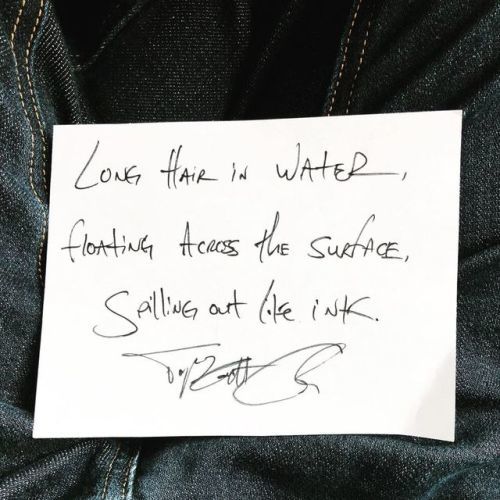 Long Hair in Water,
floating Across the Surface,
Spilling out like ink.